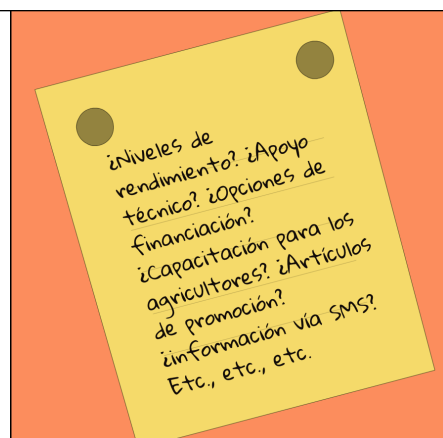 ¿Niveles de
rendimiento? ¿Apoyo
técnico? ¿Opciones de
financiación?
¿Capacitación para los
agricultores? ¿Artículos
de promoción?
¿información vía SMS?
Etc., etc., etc.